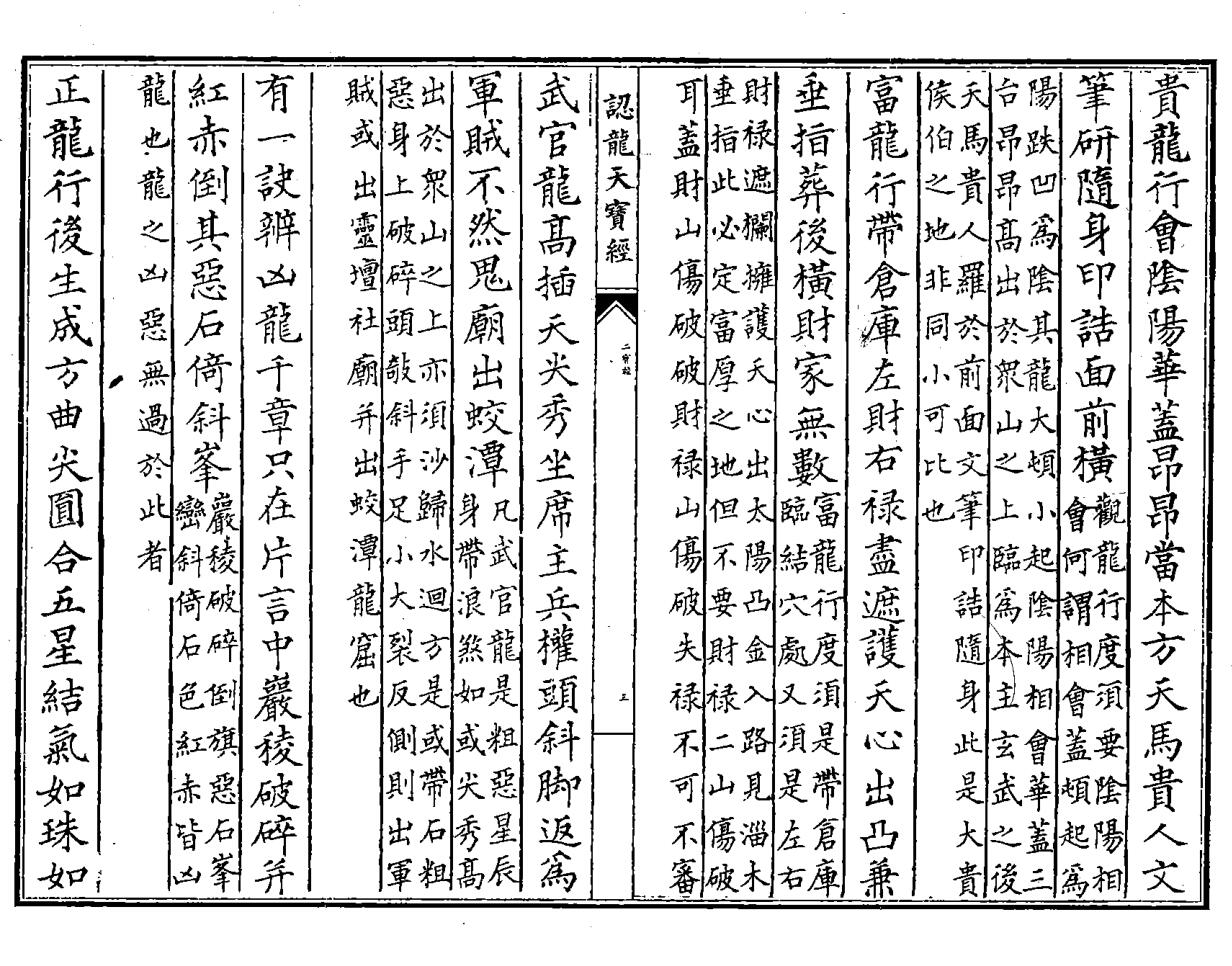 貴龍行會陰陽華蓋昂昂當本方天馬貴人文
筆研隨身印誥面前橫
觀龍行度須要陰陽相
會何謂相會蓋頓起爲
陽跌凹爲陰其龍大頓小起陰陽相會華蓋三
台昂昂髙出於衆山之上臨爲本主玄武之後
天馬貴人羅於前面文筆印誥隨身此是大貴
侯伯之地非同小可比也
富龍行帶倉庫左財右禄盡遮護天心出凸兼
垂指葬後橫財家無數
富龍行度須是帶倉庫
臨結穴處又須是左右
財禄遮攔擁護天心出太陽凸金入路見淄木
垂指此必定富厚之地但不要財禄二山傷破
耳蓋財山傷破破財禄山傷破失禄不可不審
認龍天寶經
三
武官龍髙插天尖秀坐席主兵權頭斜脚返爲
軍賊不然鬼廟出蛟潭
凡武官龍是粗惡星辰
身帶浪煞如或尖秀髙
出於衆山之上亦須沙歸水迴方是或帶石粗
惡身上破碎頭敧斜手足小大裂反側則出軍
賊或出靈壇社廟并出蛟潭龍窟也
有一訣辨凶龍千章只在片言中巖稜破碎并
紅赤倒其惡石倚斜峯
巖稜破碎倒旗惡石峯
巒斜倚石色紅赤皆凶
龍也龍之凶惡無過於此者
正龍行後生成方曲尖圓合五星結氣如珠如